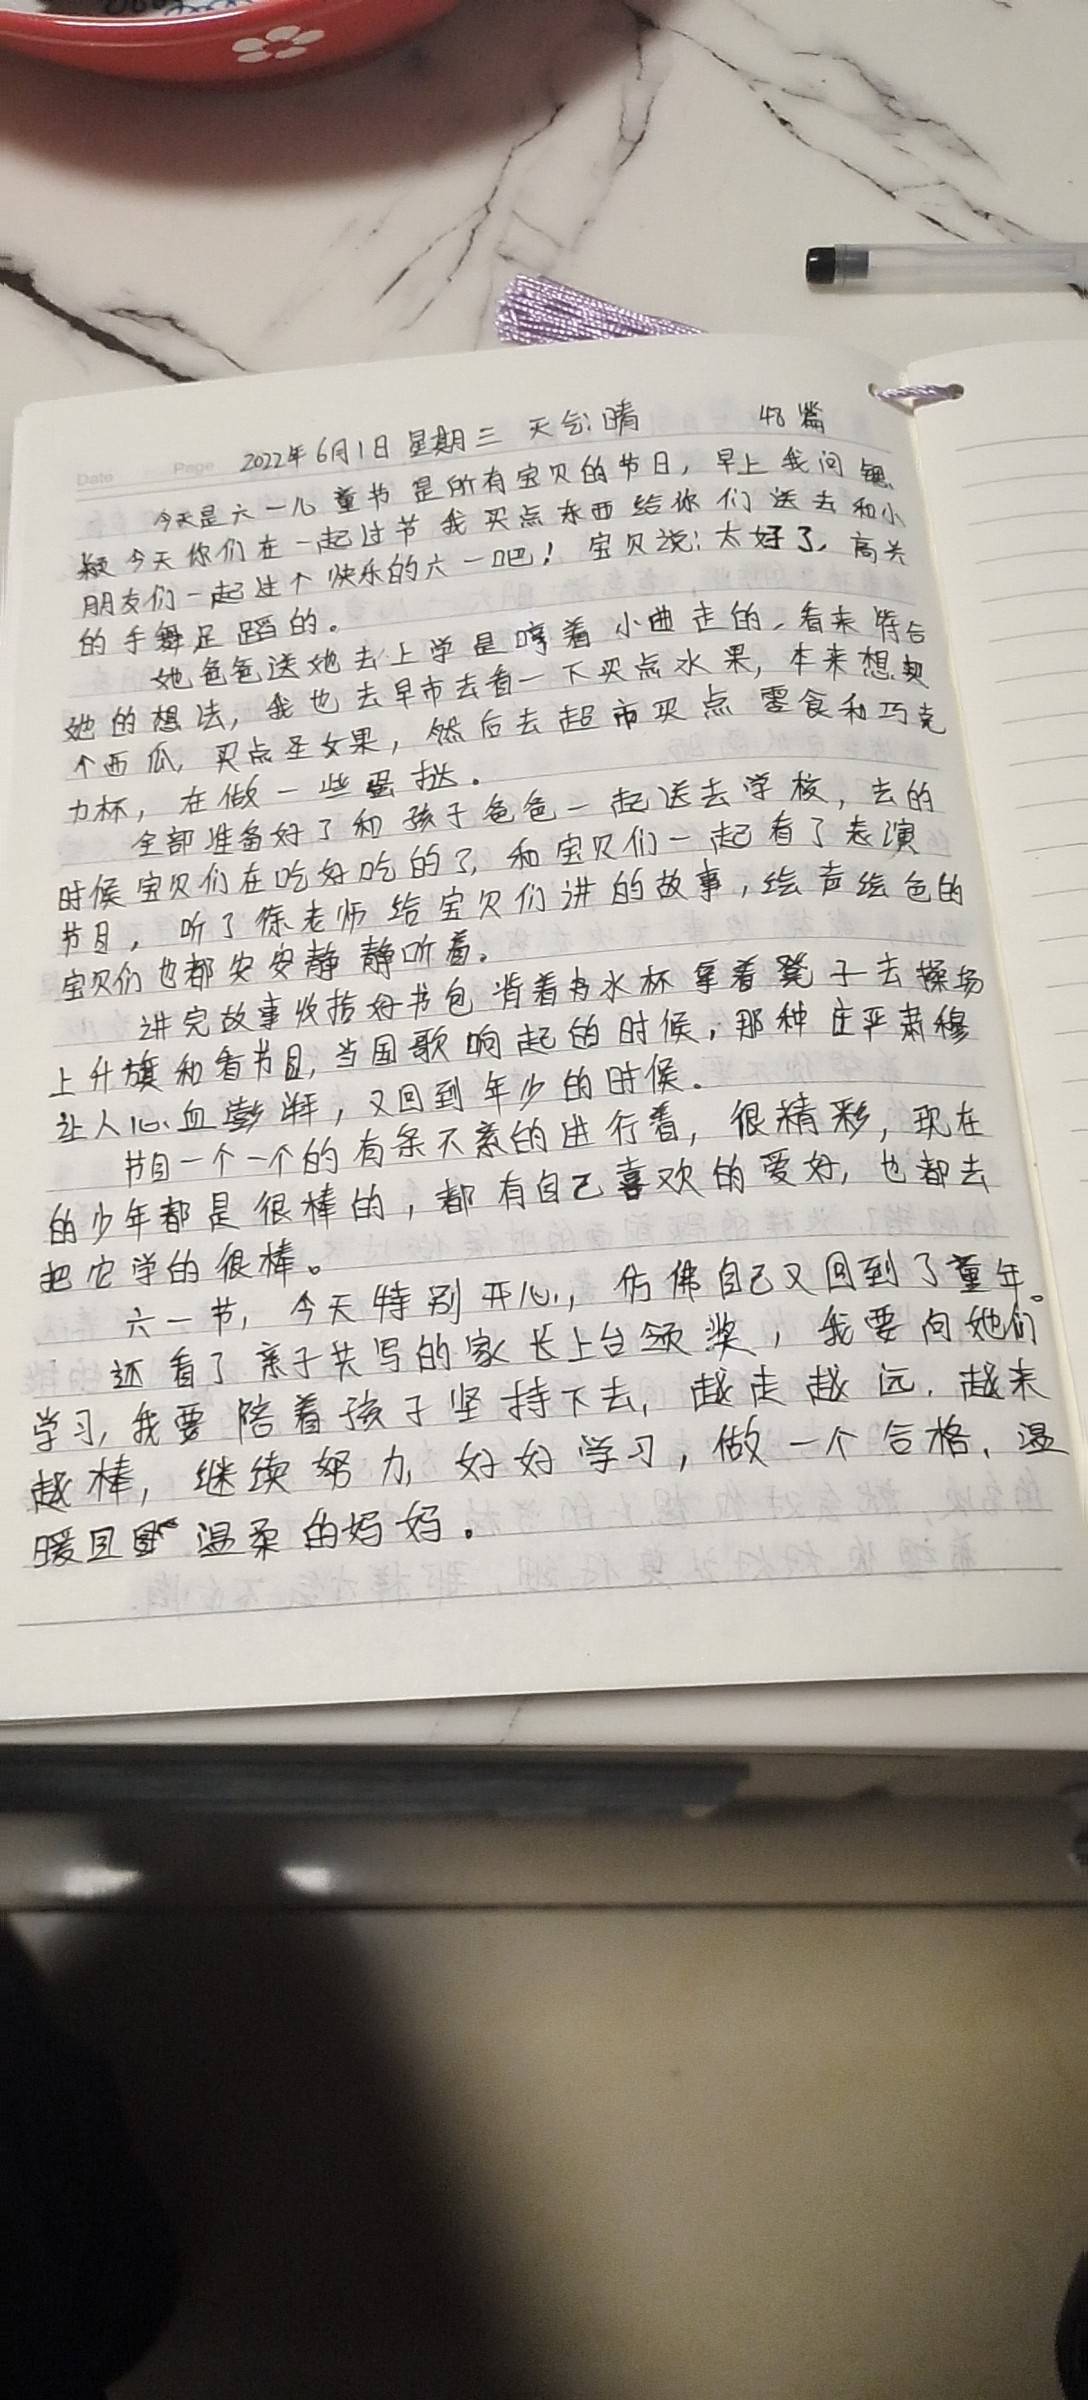 Date Page 2022年6月1日 星期三 天气:晴 48篇
今天是六一儿童节是所有宝贝的节日，早上我问
今天你们在一起过节我买点东西给你们送去和小
朋友们一起过个快乐的六一吧！宝贝说:太好了，高兴
的手舞足蹈的。
她爸爸送她去上学是哼着小曲走的，看来符合
她的想法，我也去早市去看一下买点水果，本来想买
个西瓜，买点圣女果，然后去超市买点零食和巧克
力杯，在做一些蛋挞。
全部准备好了和孩子爸爸一起送去学校，去的
时候宝贝们在吃好吃的了，和宝贝们一起看了表演
节目，听了徐老师给宝贝们讲的故事，绘声绘色的
宝贝们也都安安静静听着。
讲完故事收拾好书包背着水杯拿着凳子去操场
上升旗和看节目，当国歌响起的时候，那种庄严肃穆
让人心血澎湃，又回到年少的时候。
节目一个一个的有条不紊的进行着，很精彩，现在
的少年都是很棒的，都有自己喜欢的爱好，也都去
把它学的很棒。
六一节，今天特别开心，仿佛自己又回到了童年。
还看了亲子共写的家长上台领奖，我要向她们
学习，我要陪着孩子坚持下去，越走越远，越来
越棒，继续努力，好好学习，做一个合格、温
暖且温柔的妈妈。